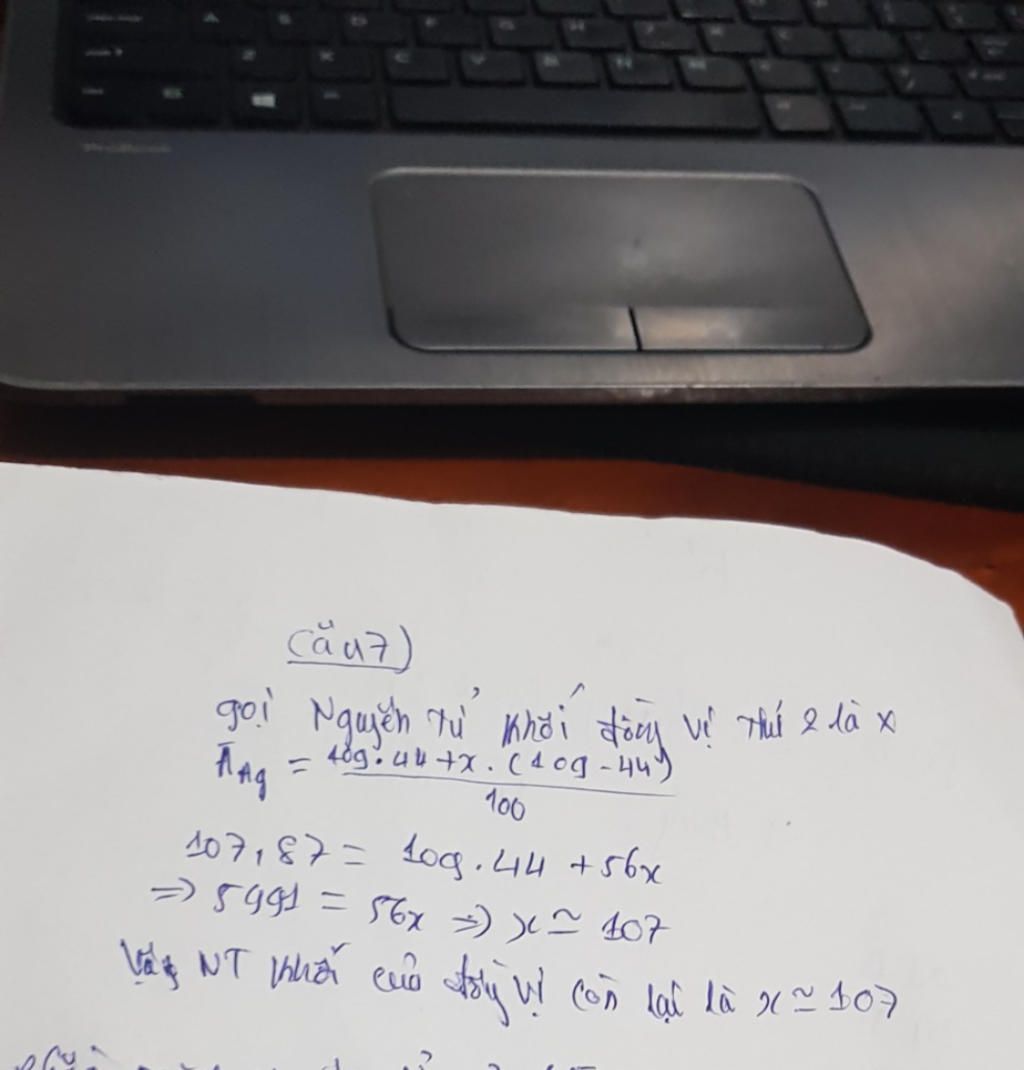 A S D F G H
Z X C V B N M
ProBook
Câu 7)
gọi Nguyên tử khối đồng vị thứ 2 là x
ĀAg = 109.44 + x.(109-44) / 100
107,87 = 109.44 + 56x
=> 5991 = 56x => x ≃ 107
Vậy NT khối của đồng vị còn lại là x ≃ 107